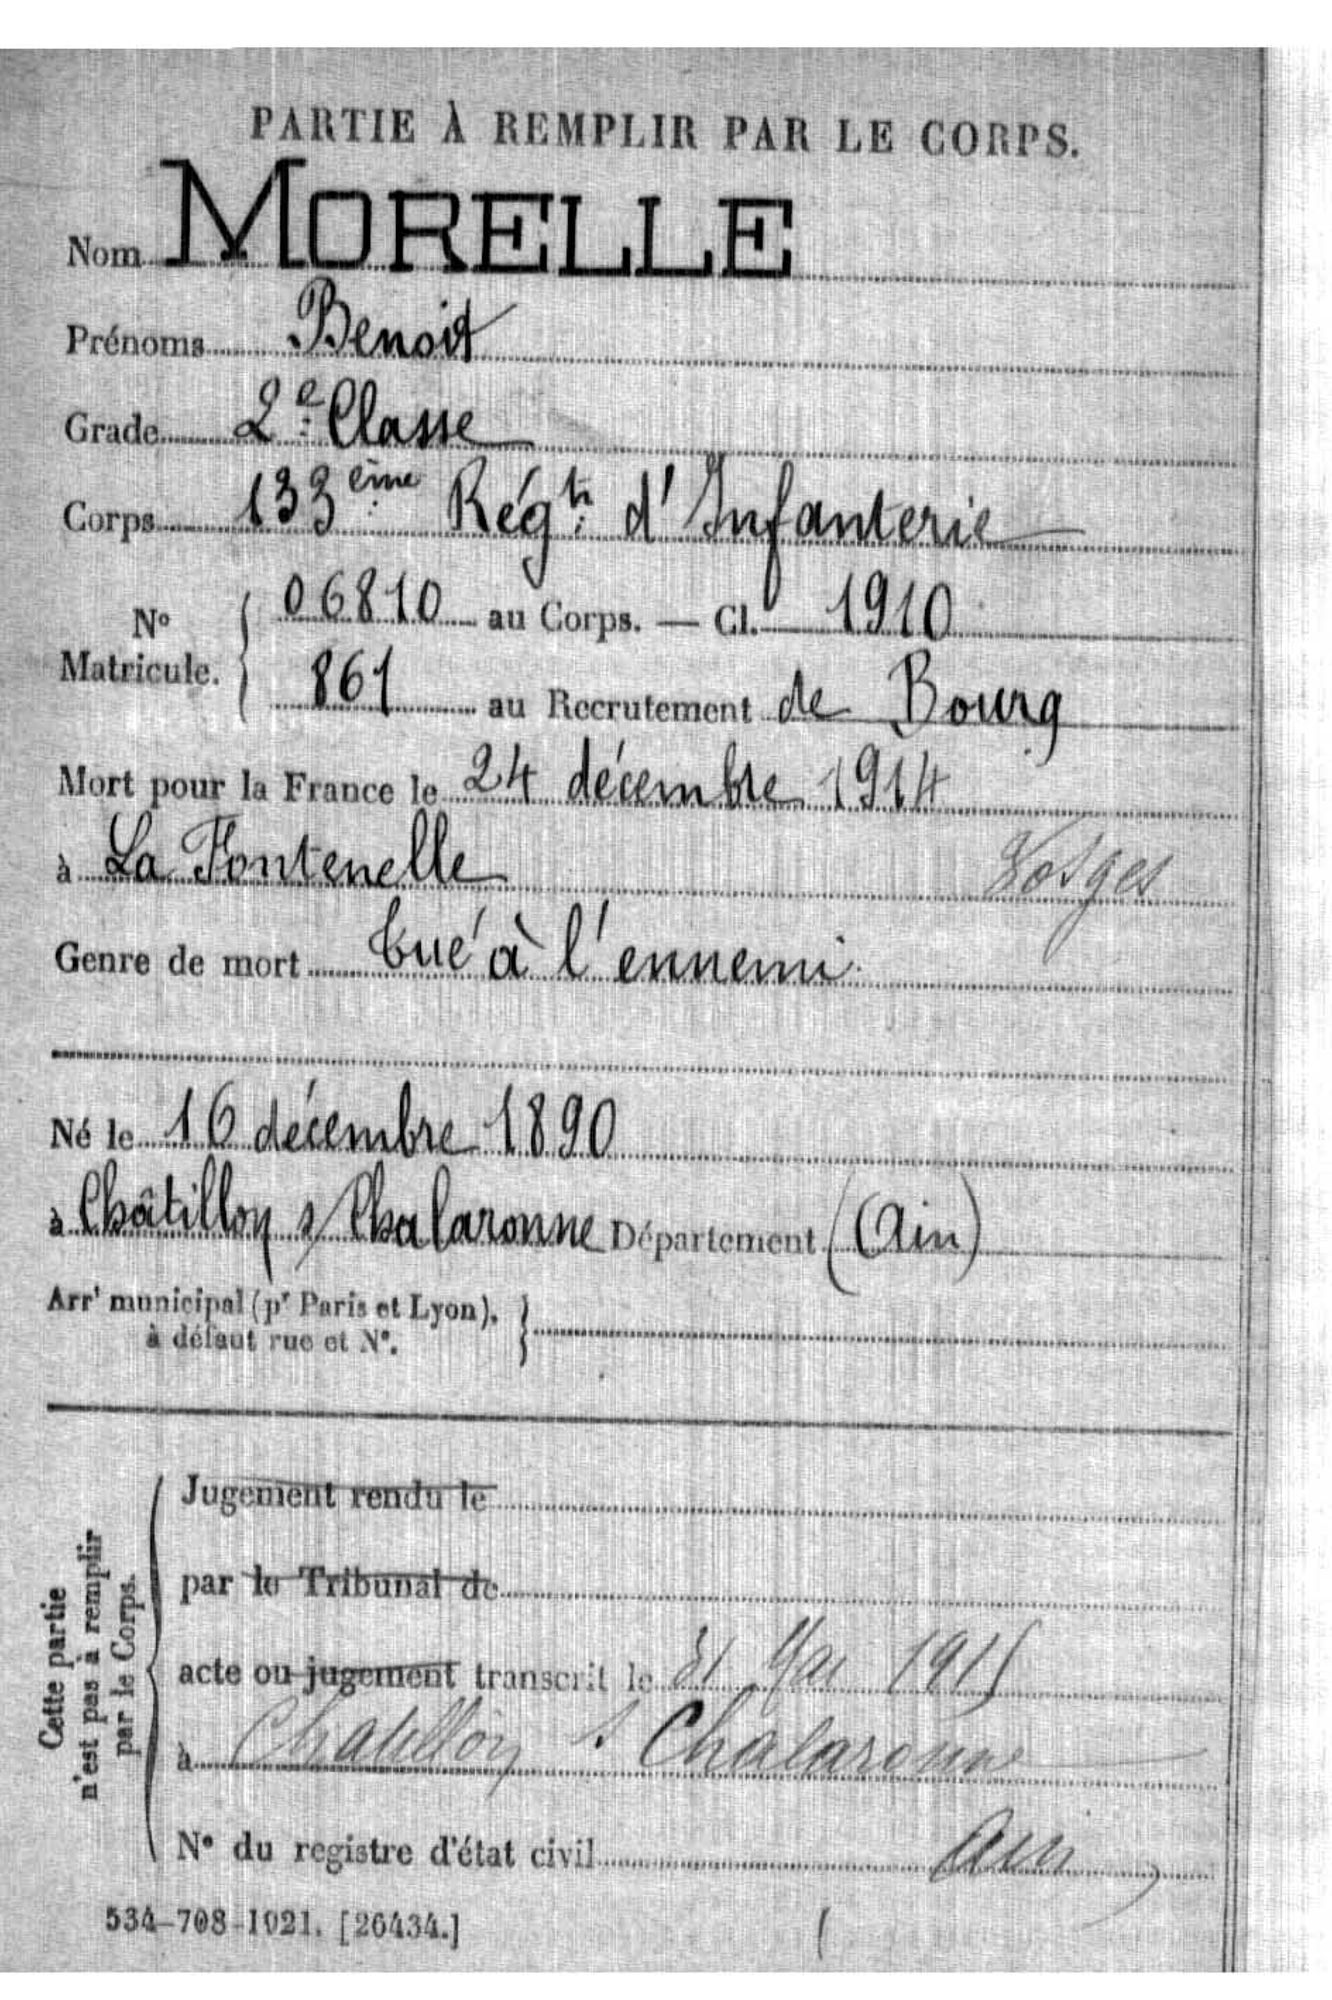 PARTIE À REMPLIR PAR LE CORPS.
Nom MORELLE
Prénoms Benoit
Grade 2e Classe
Corps 133ème Régt d'Infanterie
No Matricule. { 06810 au Corps. — Cl. 1910
861 au Recrutement de Bourg
Mort pour la France le 24 décembre 1914
à La Fontenelle Vosges
Genre de mort tué à l'ennemi
Né le 16 décembre 1890
à Châtillon s/ Chalaronne Département (Ain)
Arrt municipal (pr Paris et Lyon), }
à défaut rue et No.
Cette partie
n'est pas à remplir
par le Corps.
Jugement rendu le
par le Tribunal de
acte ou jugement transcrit le 31 Mai 1915
à Chatillon s Chalaronne
No du registre d'état civil Ain
534-708-1921. [26434.]